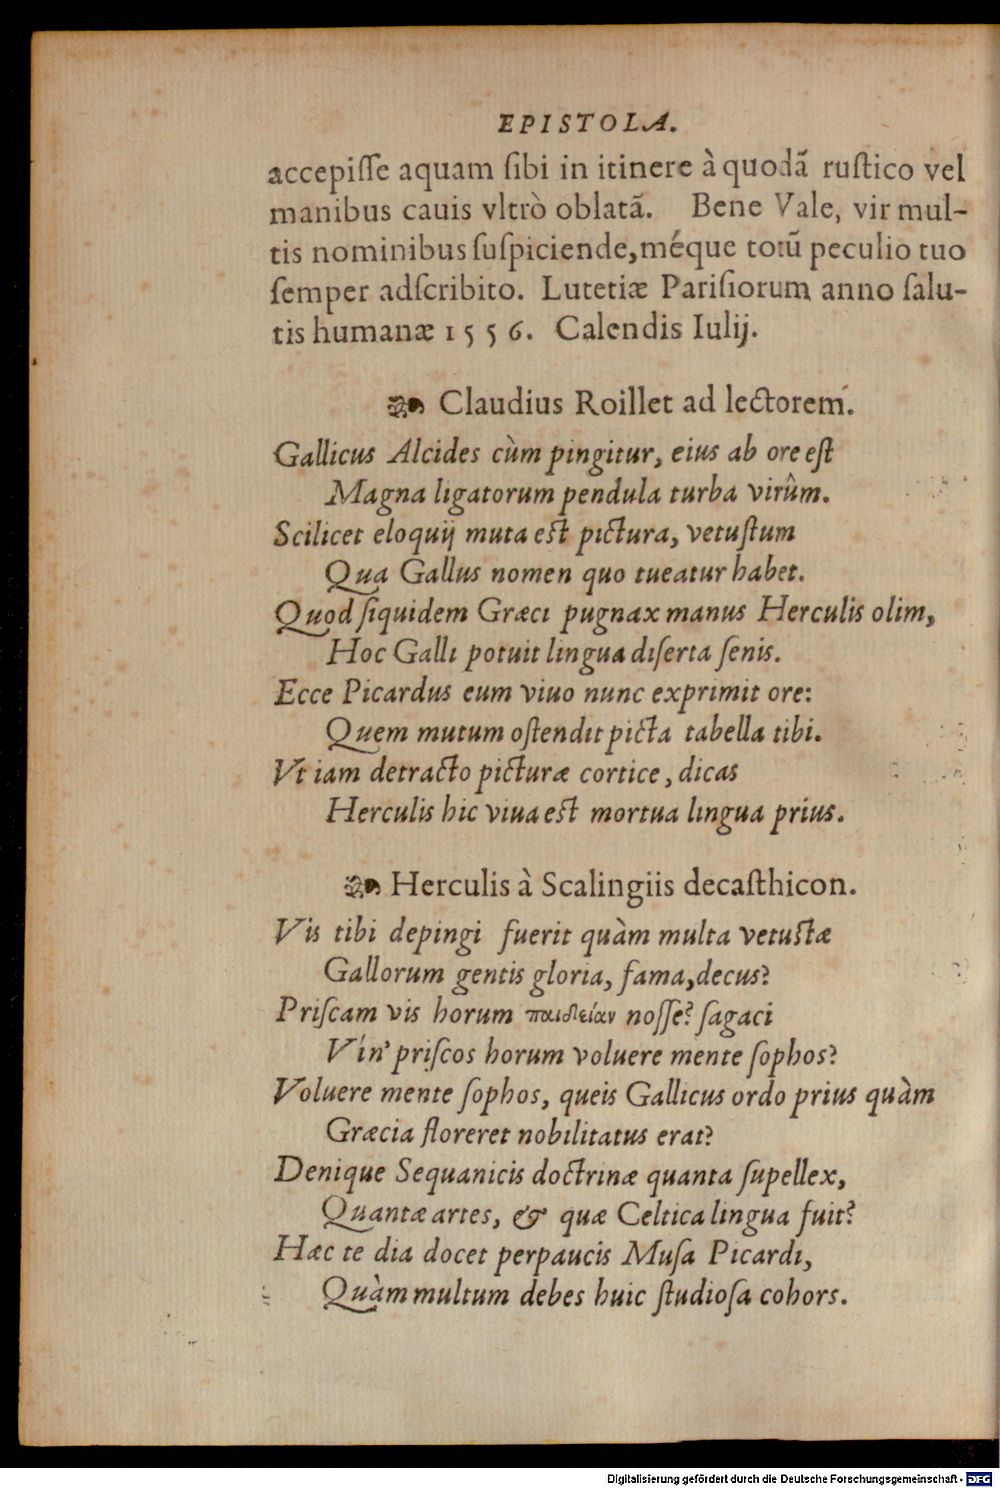 EPISTOLA.
accepiſſe aquam ſibi in itinere à quodã ruſtico vel
manibus cauis vltrò oblatã. Bene Vale, vir mul-
tis nominibus ſuſpiciende, méque totũ peculio tuo
ſemper adſcribito. Lutetiæ Pariſiorum anno ſalu-
tis humanæ 1556. Calendis Iulij.
❧ Claudius Roillet ad lectorem.
Gallicus Alcides cùm pingitur, eius ab ore eſt
Magna ligatorum pendula turba virûm.
Scilicet eloquij muta eſt pictura, vetuſtum
Qua Gallus nomen quo tueatur habet.
Quod ſiquidem Græci pugnax manus Herculis olim,
Hoc Galli potuit lingua diſerta ſenis.
Ecce Picardus eum viuo nunc exprimit ore:
Quem mutum oſtendit picta tabella tibi.
Vt iam detracto picturæ cortice, dicas
Herculis hic viua eſt mortua lingua prius.
❧ Herculis à Scalingiis decaſthicon.
Vis tibi depingi fuerit quàm multa vetuſtæ
Gallorum gentis gloria, fama, decus?
Priſcam vis horum παιδείαν noſſe? ſagaci
Vín' priſcos horum voluere mente ſophos?
Voluere mente ſophos, queis Gallicus ordo prius quàm
Græcia floreret nobilitatus erat?
Denique Sequanicis doctrinæ quanta ſupellex,
Quantæ artes, & quæ Celtica lingua fuit?
Hæc te dia docet perpaucis Muſa Picardi,
Quàm multum debes huic ſtudioſa cohors.
Digitalisierung gefördert durch die Deutsche Forschungsgemeinschaft - DFG